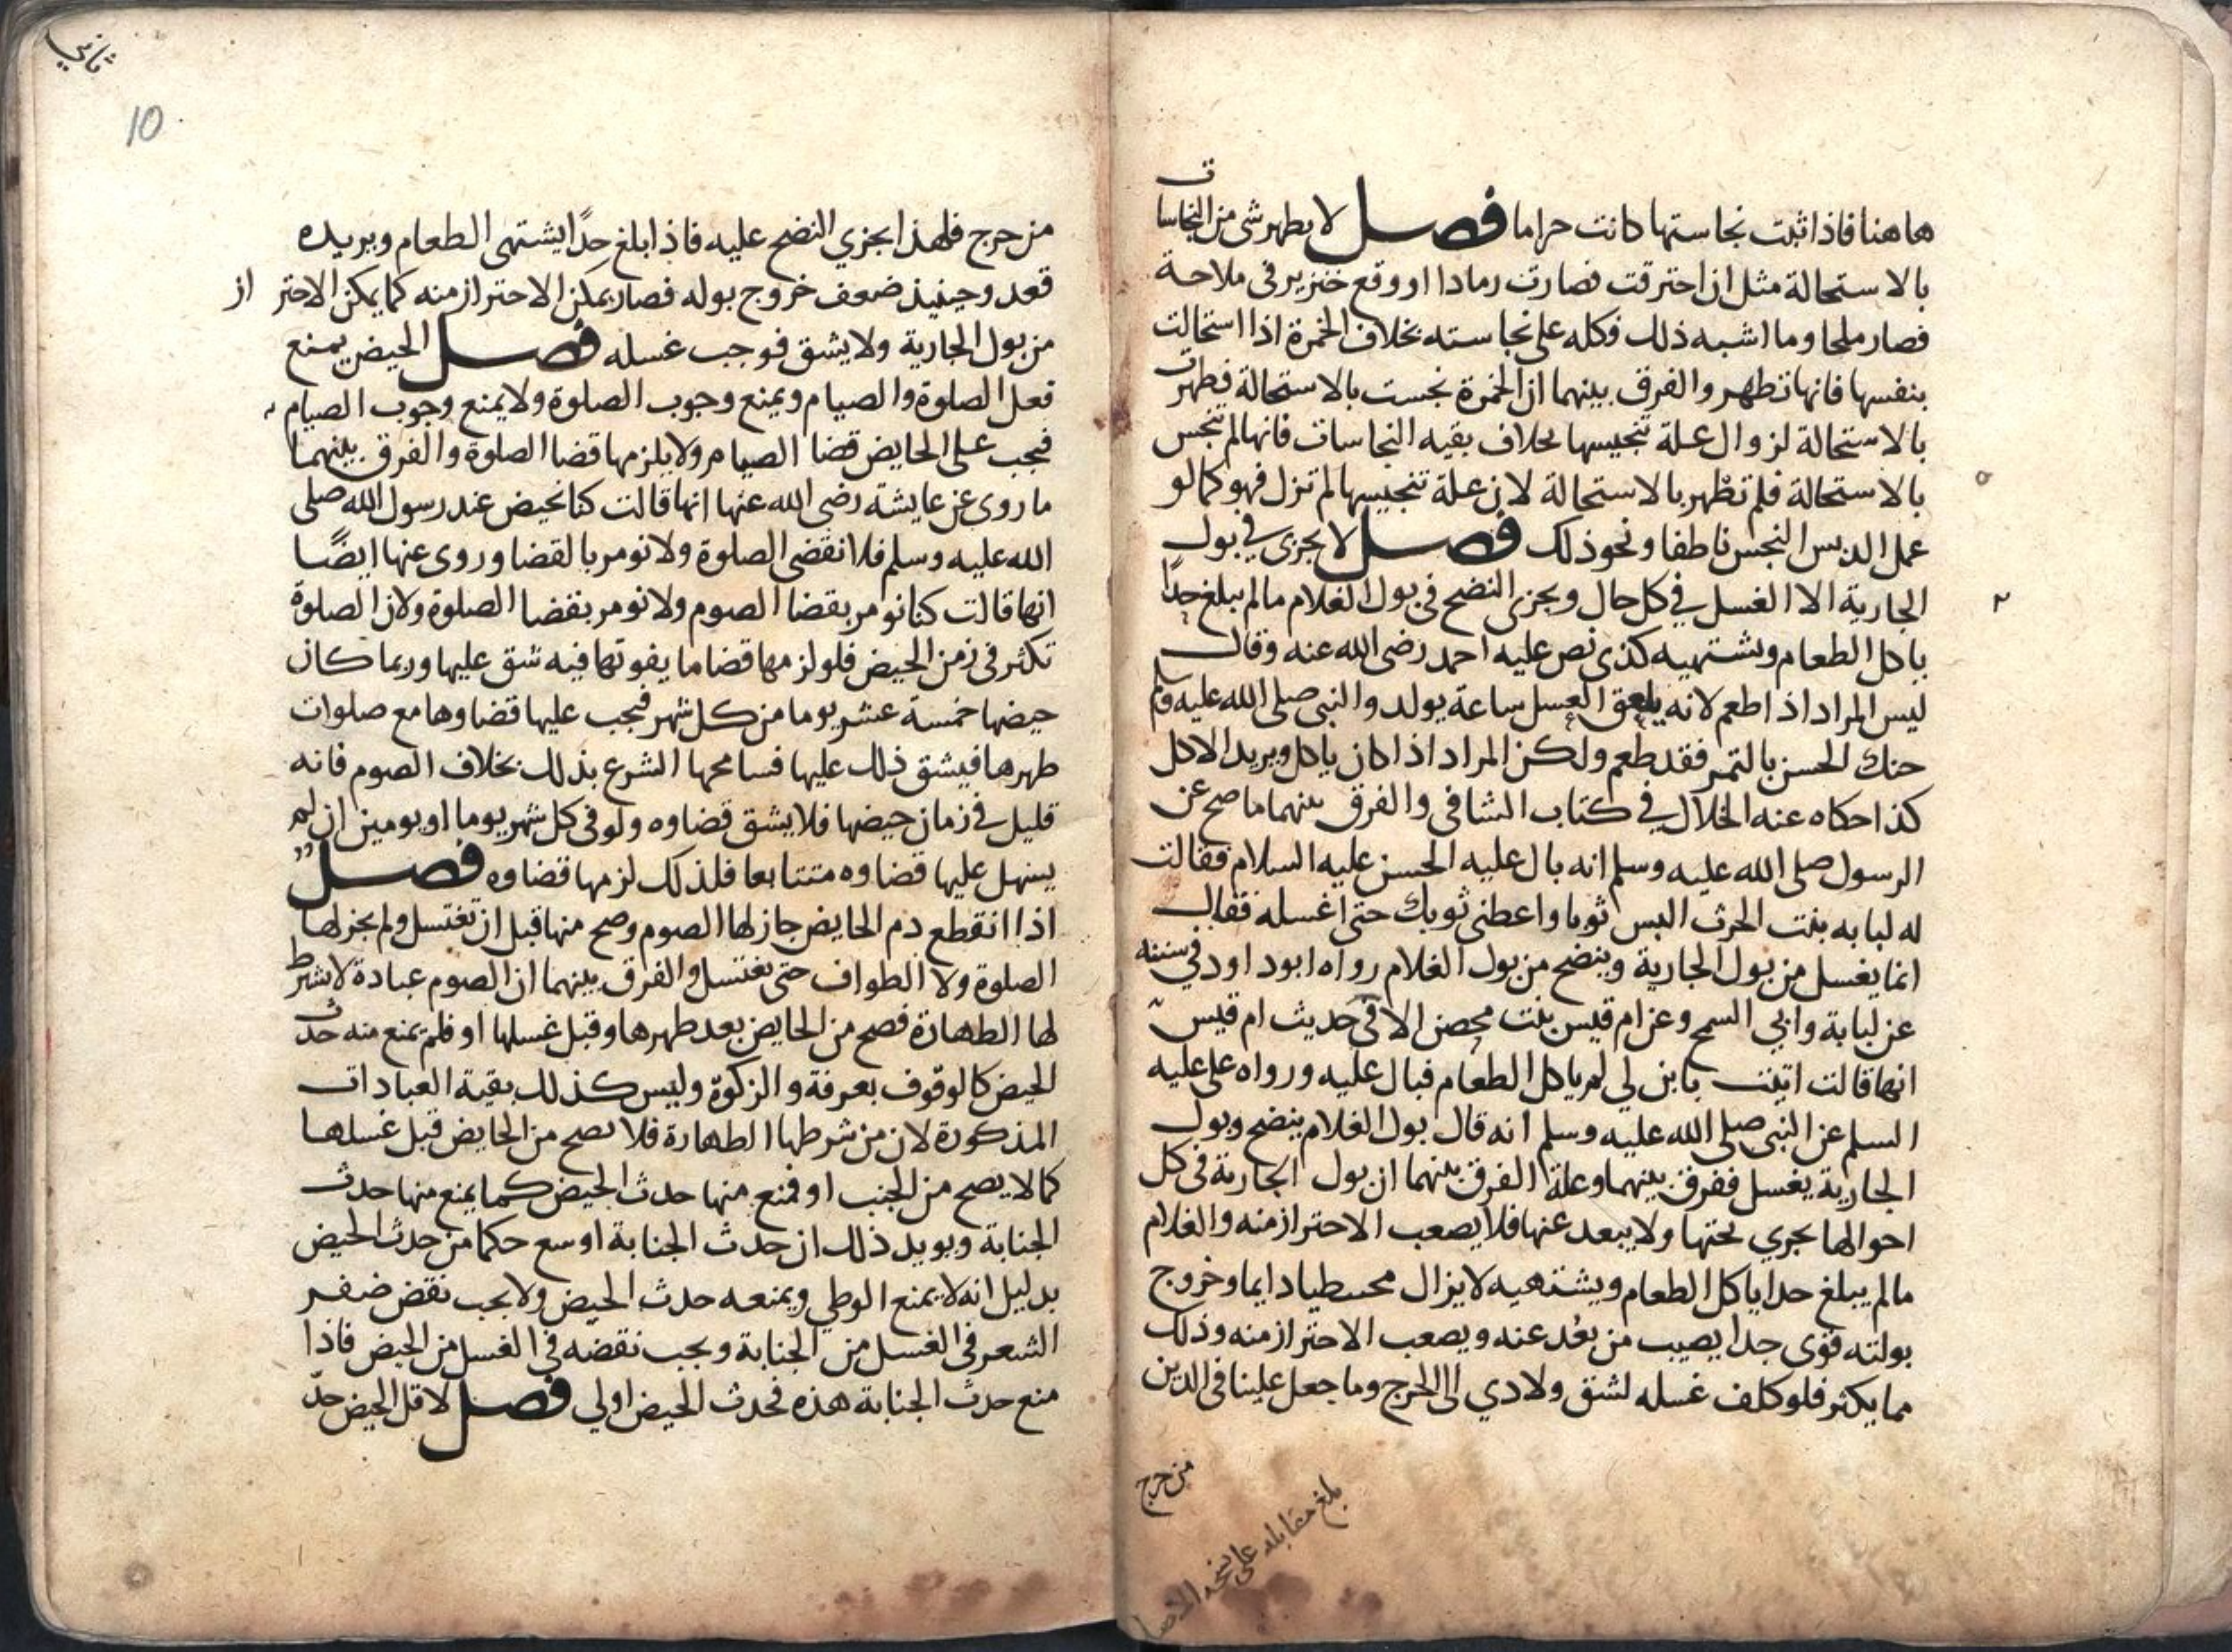 هاهنا فاذا ثبت نجاستها كانت حراما فصل لا يطهر شي من النجاسات
بالاستحالة مثل ان احترقت فصارت رمادا او وقع خنزير في ملاحة
فصار ملحا وما اشبه ذلك فكله على نجاسته بخلاف الخمرة اذا استحالت
بنفسها فانها تطهر والفرق بينهما ان الخمرة نجست بالاستحالة فطهرت
بالاستحالة لزوال علة تنجيسها بخلاف بقيه النجاسات فانها لم تنجس
بالاستحالة فلم تطهر بالاستحالة لان علة تنجيسها لم تزل فهو كما لو
عمل الدبس النجس ناطفا ونحو ذلك فصل لا يجزى في بول
الجارية الا الغسل في كل حال ويجزى النضح في بول الغلام مالم يبلغ حدًا
ياكل الطعام ويشتهيه كذى نص عليه احمد رضى الله عنه وقال
ليس المراد اذا طعم لانه يلعق العسل ساعة يولد والنبى صلى الله عليه وسلم
حنك الحسن بالتمر فقد طعم ولكن المراد اذا كان ياكل ويريد الاكل
كذا حكاه عنه الخلال في كتاب الشافى والفرق بينهما ما صح عن
الرسول صلى الله عليه وسلم انه بال عليه الحسن عليه السلام فقالت
له لبابه بنت الحرث البس ثوبا واعطنى ثوبك حتى اغسله فقال
انما يغسل من بول الجارية وينضح من بول الغلام رواه ابوداود في سننه
عن لبابة وابي السمح وعن ام قيس بنت محصن الا في حديث ام قيس
انها قالت اتيت بابن لي لم ياكل الطعام فبال عليه ورواه على عليه
السلم عن النبى صلى الله عليه وسلم انه قال بول الغلام ينضح وبول
الجارية يغسل ففرق بينهما وعلة الفرق بينهما ان بول الجارية في كل
احوالها يجري تحتها ولا يبعد عنها فلا يصعب الاحتراز منه والغلام
مالم يبلغ حدا ياكل الطعام ويشتهيه لايزال دايما وخروج
بولته قوى جدا يصيب من بُعد عنه ويصعب الاحتراز منه وذلك
مما يكثر فلو كلف غسله لشق ولادي الى الحرج وما جعل علينا في الدين
من حرج
بلغ مقابله على نسخه
ثاني
10
من حرج فلهذا يجزي النضح عليه فاذا بلغ حدًا يشتهى الطعام ويريده
قعد وحينيذ ضعف خروج بوله فصار يمكن الاحتراز منه كما يمكن الاحتراز
من بول الجارية ولا يشق فوجب غسله فصل الحيض يمنع
فعل الصلوة والصيام ويمنع وجوب الصلوة ولا يمنع وجوب الصيام
فيجب على الحايض قضا الصيام ولا يلزمها قضا الصلوة والفرق بينهما
ما روى عن عايشة رضى الله عنها انها قالت كنا نحيض عند رسول الله صلى
الله عليه وسلم فلا نقضى الصلوة ولا نومر بالقضا وروى عنها ايضًا
انها قالت كنا نومر بقضا الصوم ولا نومر بقضا الصلوة ولان الصلوة
تكثر في زمن الحيض فلو لزمها قضا ما يفوتها فيه شق عليها وربما كان
حيضها خمسة عشر يوما من كل شهر فيجب عليها قضاوها مع صلوات
طهرها فيشق ذلك عليها فسامحها الشرع بذلك بخلاف الصوم فانه
قليل في زمان حيضها فلا يشق قضاوه ولو في كل شهر يوما او يومين ان لم
يسهل عليها قضاوه متتابعا فلذلك لزمها قضاوه فصل
اذا انقطع دم الحايض جاز لها الصوم وصح منها قبل ان تغتسل ولم يجز لها
الصلوة ولا الطواف حتى تغتسل والفرق بينهما ان الصوم عبادة لا يشترط
لها الطهارة فصح من الحايض بعد طهرها وقبل غسلها او فلم يمنع منه حدث
الحيض كالوقوف بعرفة والزكوة وليس كذلك بقية العبادات
المذكورة لان من شرطها الطهارة فلا يصح من الحايض قبل غسلها
كما لا يصح من الجنب او فمنع منها حدث الحيض كما يمنع منها حدث
الجنابة ويويد ذلك ان حدث الجنابة اوسع حكما من حدث الحيض
بدليل انه لا يمنع الوطي ويمنعه حدث الحيض ولا يجب نقض ضفر
الشعر في الغسل من الجنابة ويجب نقضه في الغسل من الحيض فاذا
منع حدث الجنابة هذه فحدث الحيض اولى فصل لاقل الحيض حدّ